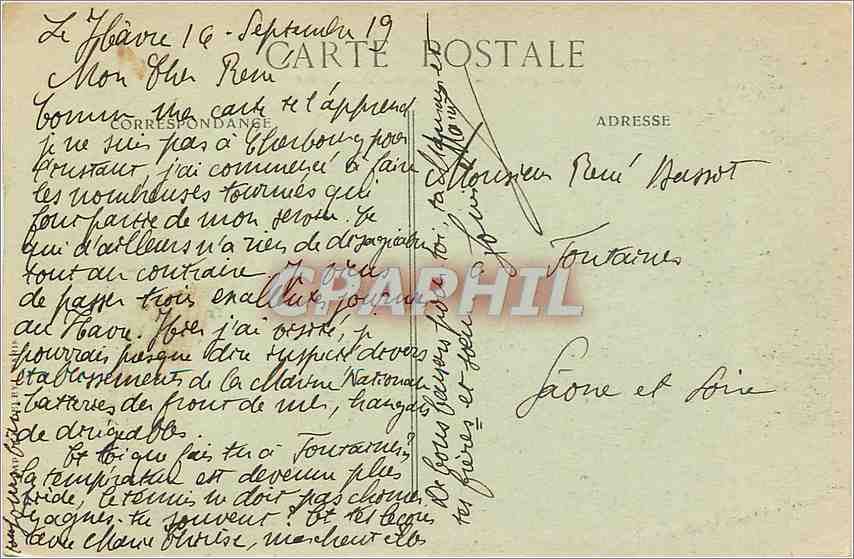 Le Hâvre 16 - Septembre 19
CARTE POSTALE
Mon Cher René
Comme ma carte te l'apprend
CORRESPONDANCE
ADRESSE
je ne suis pas à Cherbourg pour
l'instant, j'ai commencé à faire
les nombreuses tournées qui
font partie de mon service. Ce
qui d'ailleurs n'a rien de désagréable
tout au contraire. Je viens
de passer trois excellentes journées
au Havre. Hier j'ai visité, je
pourrais presque dire inspecté divers
établissements de la Marine Nationale
batteries du front de mer, hangars
de dirigeables.
Et toi que fais tu à Fontaines?
La température est devenue plus
, le tennis ne doit pas chômer
gagnes-tu souvent? Et tes leçons
avec Marie Thérèse, marchent elles
De bons baisers pour toi, ta Maman et
tes frères et sœur
Louis
Monsieur René Bassot
Fontaines
Saône et Loire
CPAPHIL